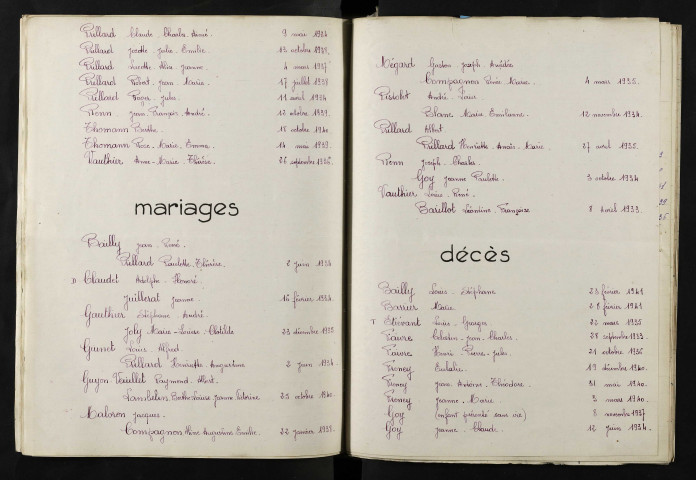 Prillard Claude Charles Aimé. 9 mai 1934
Prillard Josette Julie Emilie. 12 octobre 1939.
Prillard Lucette Alice Jeanne. 4 mars 1937
Prillard Robert Jean Marie. 17 juillet 1938
Prillard Roger Jules. 11 avril 1934
Prenn Jean François André. 12 octobre 1939.
Thomann Berthe. 18 octobre 1940
Thomann Rose Marie Emma. 14 mai 1939.
Vauthier Anne Marie Thérèse. 26 septembre 1936.
mariages
Bailly Jean René.
Prillard Paulette Thérèse. 2 juin 1934
D Claudet Adolphe Honoré.
Juillerat Jeanne. 16 février 1934.
Gauthier Stéphane André.
Joly Marie Louise Clotilde 23 décembre 1935
Guinet Louis Alfred
Prillard Henriette Augustine 2 juin 1934.
Guyon Vuillet Raymond Albert.
Berthe Louise Jeanne 25 octobre 1940.
Maloron Jacques.
Compagnon Augustine Emilie. 22 janvier 1938.
Mégard Gaston Joseph Amédée
Compagnon Renée Marie. 4 mars 1935.
André Louis.
Blanc Marie Emilienne. 12 novembre 1934.
Prillard Albert.
Prillard Henriette Anaïs Marie. 27 avril 1935.
Prenn Joseph Charles.
Goy Jeanne Paulette. 3 octobre 1934
Vauthier Louis René.
Barillot Léontine Françoise 8 avril 1933.
décès
Bailly Louis Stéphane 23 février 1941
Barrier Marie. 28 février 1941
T Etiévant Louis Georges 22 mars 1935
Favre Célestin Jean Charles. 28 septembre 1933.
Favre Henri Pierre Jules. 21 octobre 1935
Froney Eulalie. 19 décembre 1940.
Froney Jean Antoine Théodore. 31 mai 1940.
Froney Jeanne Marie. 3 mars 1940.
Goy (enfant présenté sans vie) 8 novembre 1937
Goy Jeanne Claude. 12 juin 1934.